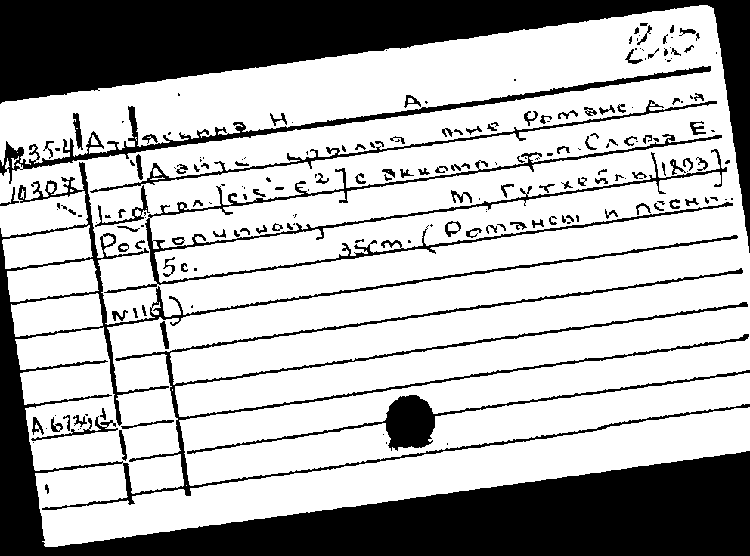 М235-4 Атряскина Н. А.
10307 Дайте крылья мне, Романс для
1-го гол. [cis¹-e²] с аккомп. ф-п. Слова Е.
Ростопчиной, М., Гутхейль, [1893].
5с. 35см. (Романсы и песни.
N116).